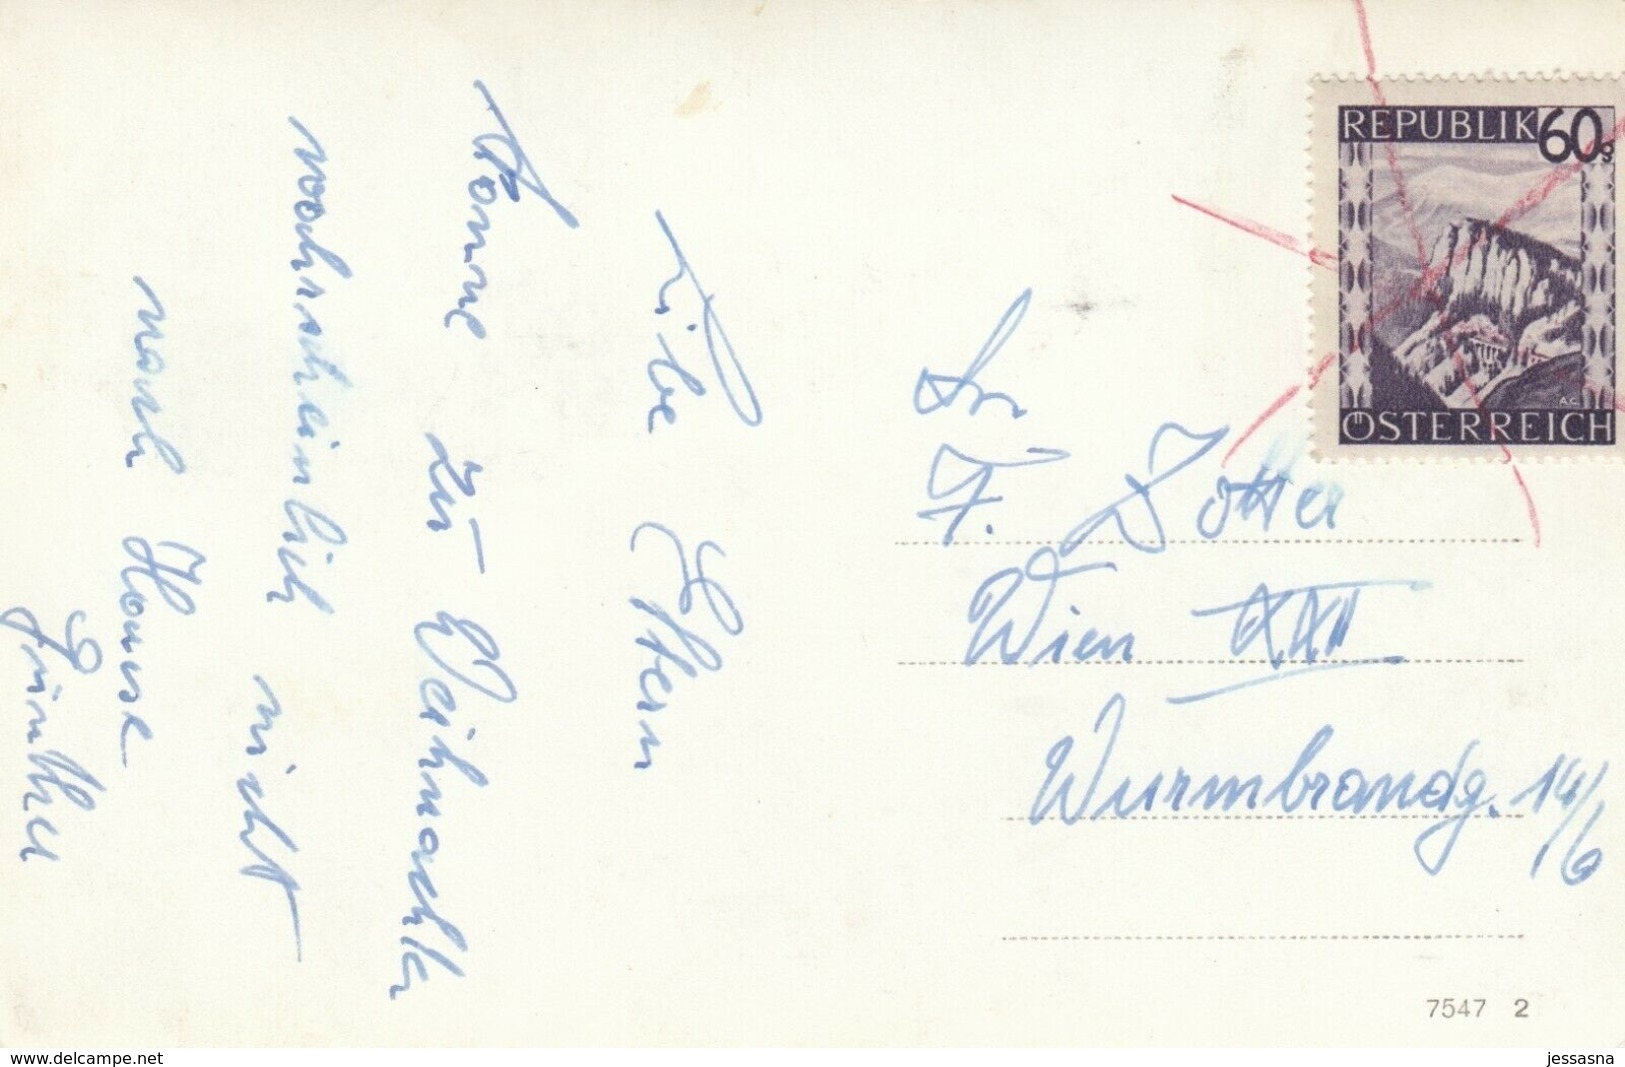 Liebe Eltern
Komme zu Weihnachten
wahrscheinlich nicht
nach Hause
Günther
REPUBLIK 60g
ÖSTERREICH
A.C.
F. Zotter
Wien XXI
Wurmbrandg. 14/6
7547 2
www.delcampe.net
jessasna